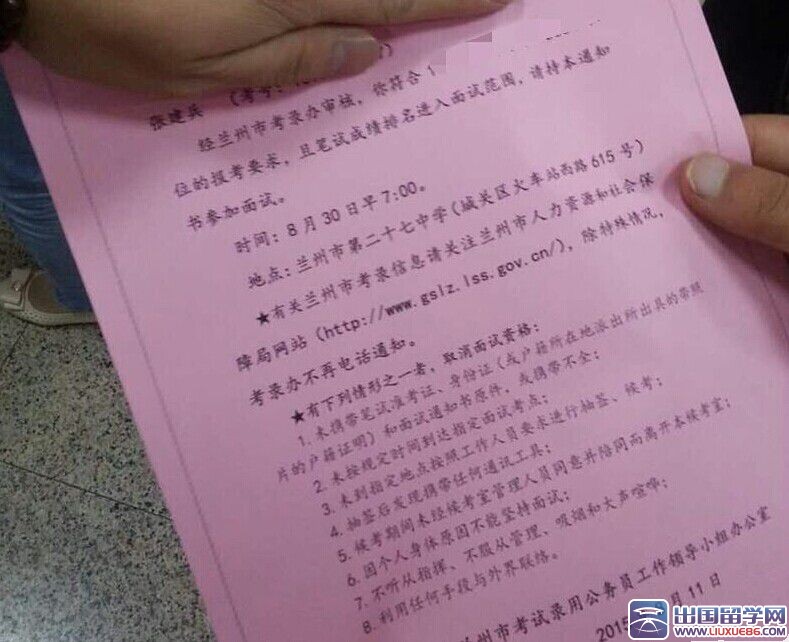 张建兵 （考号：
经兰州市考录办审核，你符合
位的报考要求，且笔试成绩排名进入面试范围，请持本通知
书参加面试。
时间：8月30日早7:00。
地点：兰州市第二十七中学(城关区火车站西路615号)
★有关兰州市考录信息请关注兰州市人力资源和社会保
障局网站（http://www.gslz.lss.gov.cn/），除特殊情况，
考录办不再电话通知。
★有下列情形之一者，取消面试资格：
1.未携带笔试准考证、身份证（或户籍所在地派出所出具的带照
片的户籍证明）和面试通知书原件，或携带不全；
2.未按规定时间到达指定面试考点；
3.未到指定地点按照工作人员要求进行抽签、候考；
4.抽签后发现携带任何通讯工具；
5.候考期间未经候考室管理人员同意并陪同而离开本候考室；
6.因个人身体原因不能坚持面试；
7.不听从指挥、不服从管理、吸烟和大声喧哗；
8.利用任何手段与外界联络。
兰州市考试录用公务员工作领导小组办公室
2015 月11日
出国留学网
WWW.LIUXUE86.COM